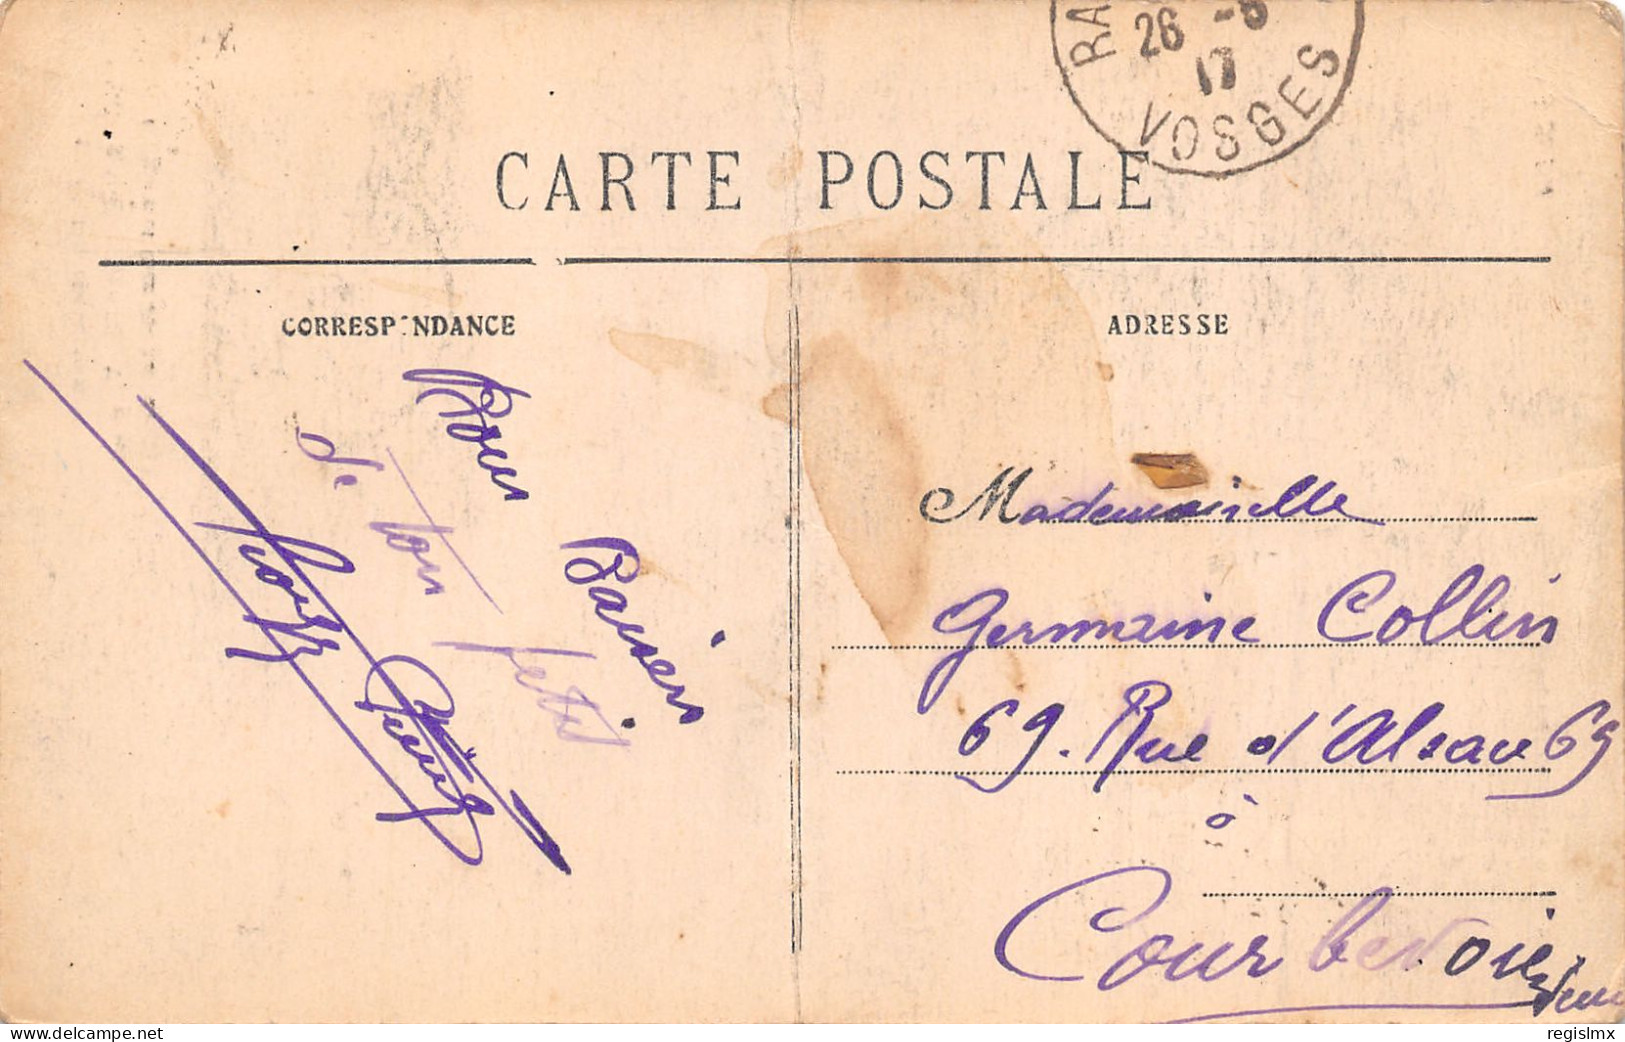 RA
26 -6
17
VOSGES
CARTE POSTALE
CORRESP NDANCE
ADRESSE
Bons Baisers
de ton petit
Mademoiselle
Germaine Collin
69. Rue d'Alsace 69
à
Courbevoie
Seine
delcampe.net
regislmx